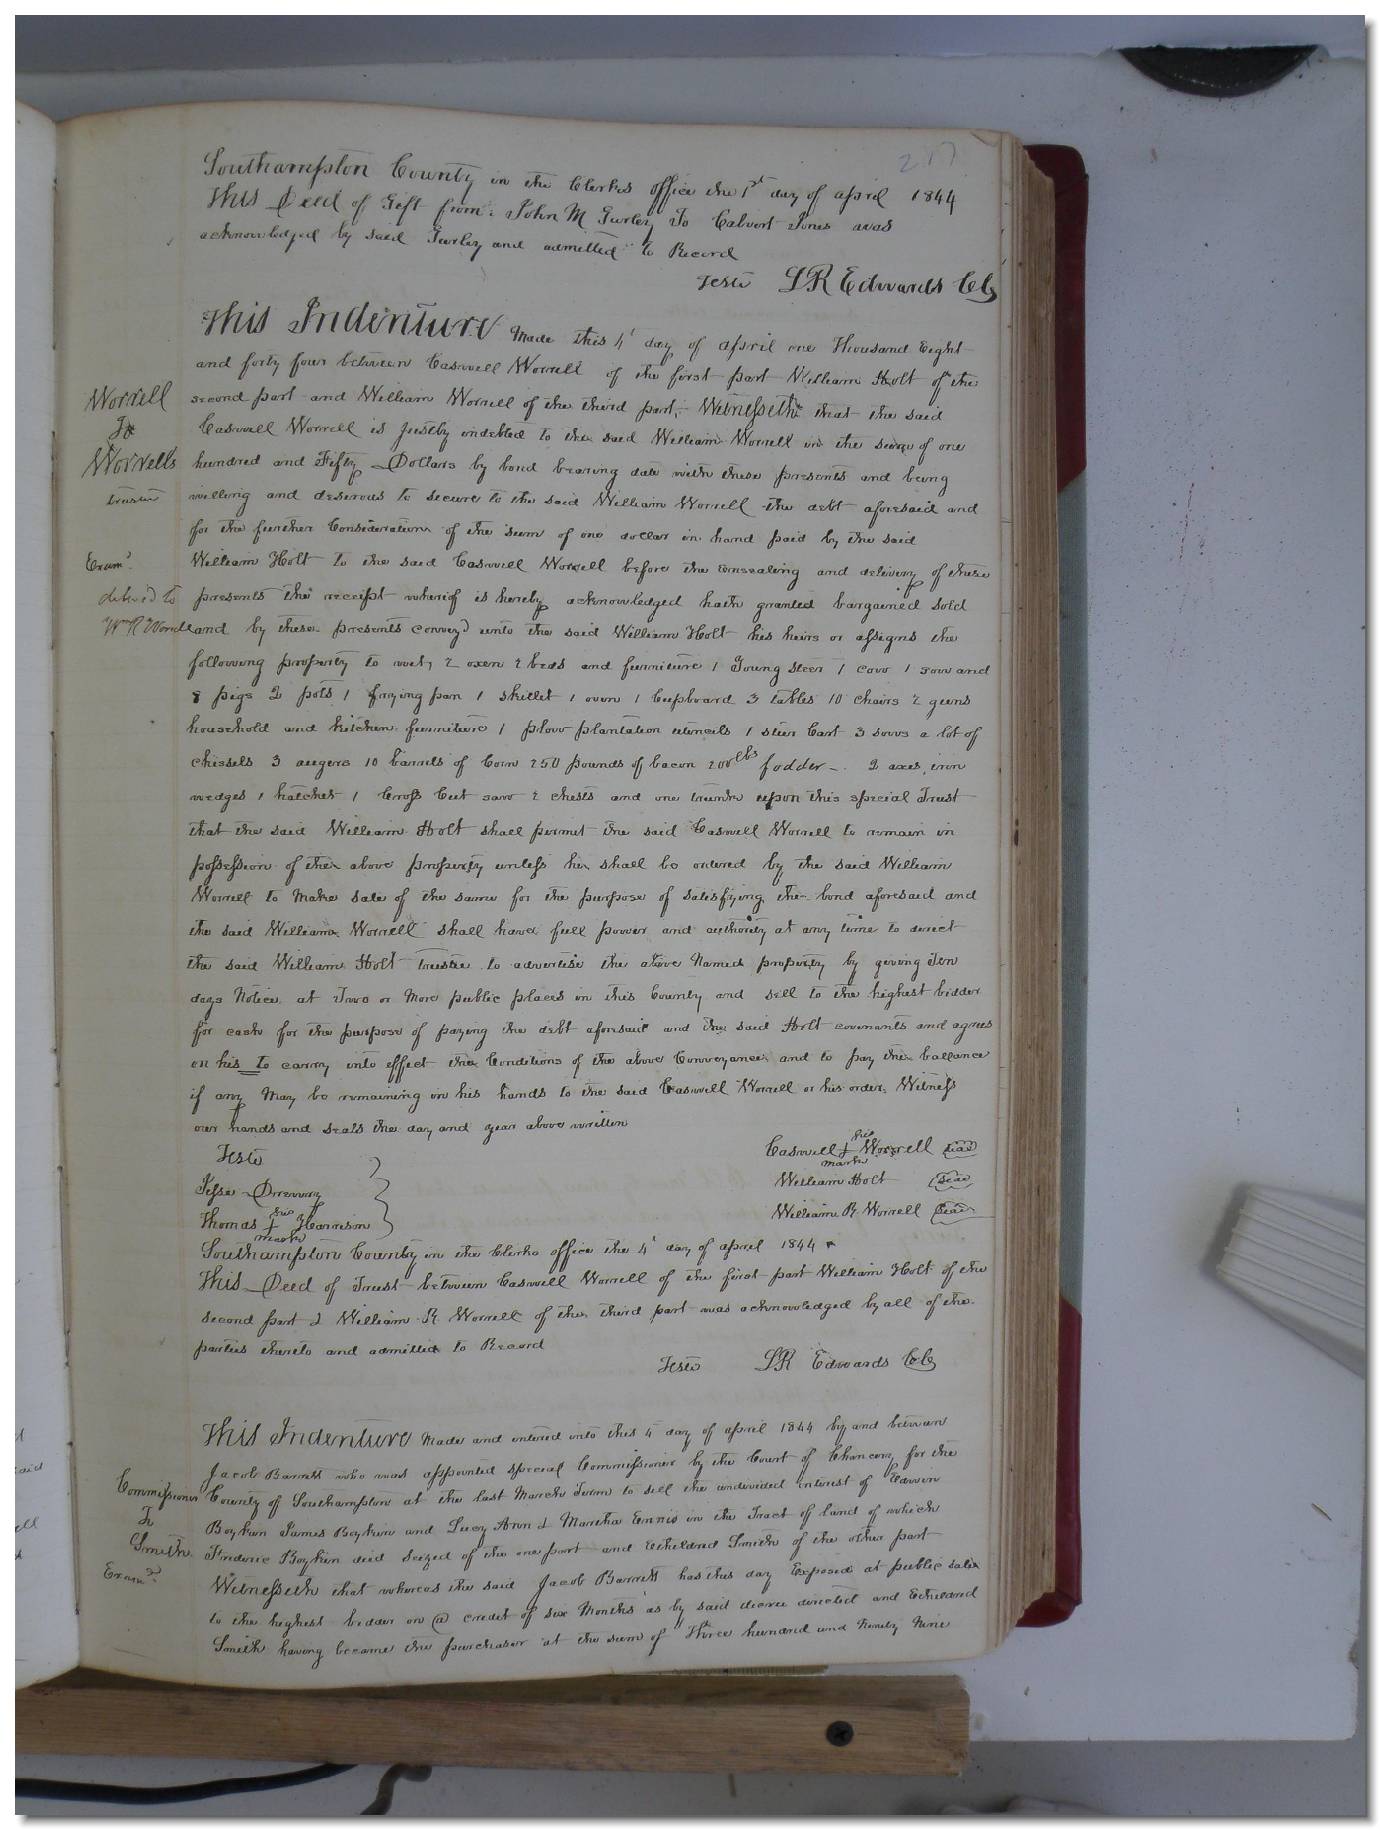 217
Southampton County in the Clerks office the 1st day of april 1844
This Deed of Gift from John M Gurley To Calvert Jones was
acknowledged by said Gurley and admitted to Record
Teste LR Edwards CC
This Indenture Made this 4' day of april one Thousand Eight
and forty four between Caswell Worrell of the first part William Holt of the
Worrell
second part and William Worrell of the third part, Witnesseth that the said
To
Caswell Worrell is justly indebted to the said William Worrell in the sum of one
Worrells
hundred and Fifty Dollars by bond bearing date with these presents and being
trustee
willing and desirous to secure to the said William Worrell the debt aforesaid and
for the further Consideration of the sum of one dollar in hand paid by the said
Exam.d
William Holt to the said Caswell Worrell before the ensealing and delivery of these
deliv'd to
presents the receipt whereof is hereby acknowledged hath granted bargained sold
Wm R Worrell
and by these presents convey'd unto the said William Holt his heirs or assigns the
following property to wit, 2 oxen 2 beds and furniture 1 Young steer 1 cow 1 sow and
8 pigs 2 pots 1 frying pan 1 skillet 1 oven 1 Cupboard 3 tables 10 chairs 2 guns
household and kitchen furniture 1 plow plantation utencils 1 steer Cart 3 sows a lot of
chissels 3 augers 10 barrels of Corn 250 pounds of bacon 200 lbs fodder - 2 axes iron
wedges 1 hatchet 1 Cross Cut saw 2 chests and one trunk upon this special Trust
that the said William Holt shall permit the said Caswell Worrell to remain in
possession of the above property unless he shall be ordered by the said William
Worrell to make sale of the same for the purpose of satisfying the bond aforesaid and
the said William Worrell shall have full power and authority at any time to direct
the said William Holt trustee to advertise the above Named property by giving Ten
days Notice at Two or More public places in this County and sell to the highest bidder
for cash for the purpose of paying the debt aforesaid and the said Holt covenants and agrees
on his to carry into effect the Conditions of the above Conveyance and to pay the ballance
if any May be remaining in his hands to the said Caswell Worrell or his order. Witness
our hands and seals the day and year above written
Teste
Caswell his mark Worrell seal
Jesse Drewry
William Holt seal
Thomas his mark Harrison
William R. Worrell seal
Southampton County in the Clerks office the 4' day of april 1844
This Deed of Trust between Caswell Worrell of the first part William Holt of the
second part & William R Worrell of the third part was acknowledged by all of the
parties thereto and admitted to Record
Teste LR Edwards CC
This Indenture Made and entered into this 4 day of april 1844 by and between
Jacob Barrett who was appointed special Commissioner by the Court of Chancery for the
Commissioner
County of Southampton at the last March Term to sell the undivided interest of Edwin
To
Boykin James Boykin and Lucy Ann & Martha Ennis in the Tract of land of which
Smith
Frederic Boykin died seized of the one part and Etheldred Smith of the other part
Exam.d
Witnesseth that whereas the said Jacob Barrett has this day Exposed at public sale
to the highest bidder on @ credit of six Months as by said decree directed and Etheldred
Smith having became the purchaser at the sum of Three hundred and Ninety Nine